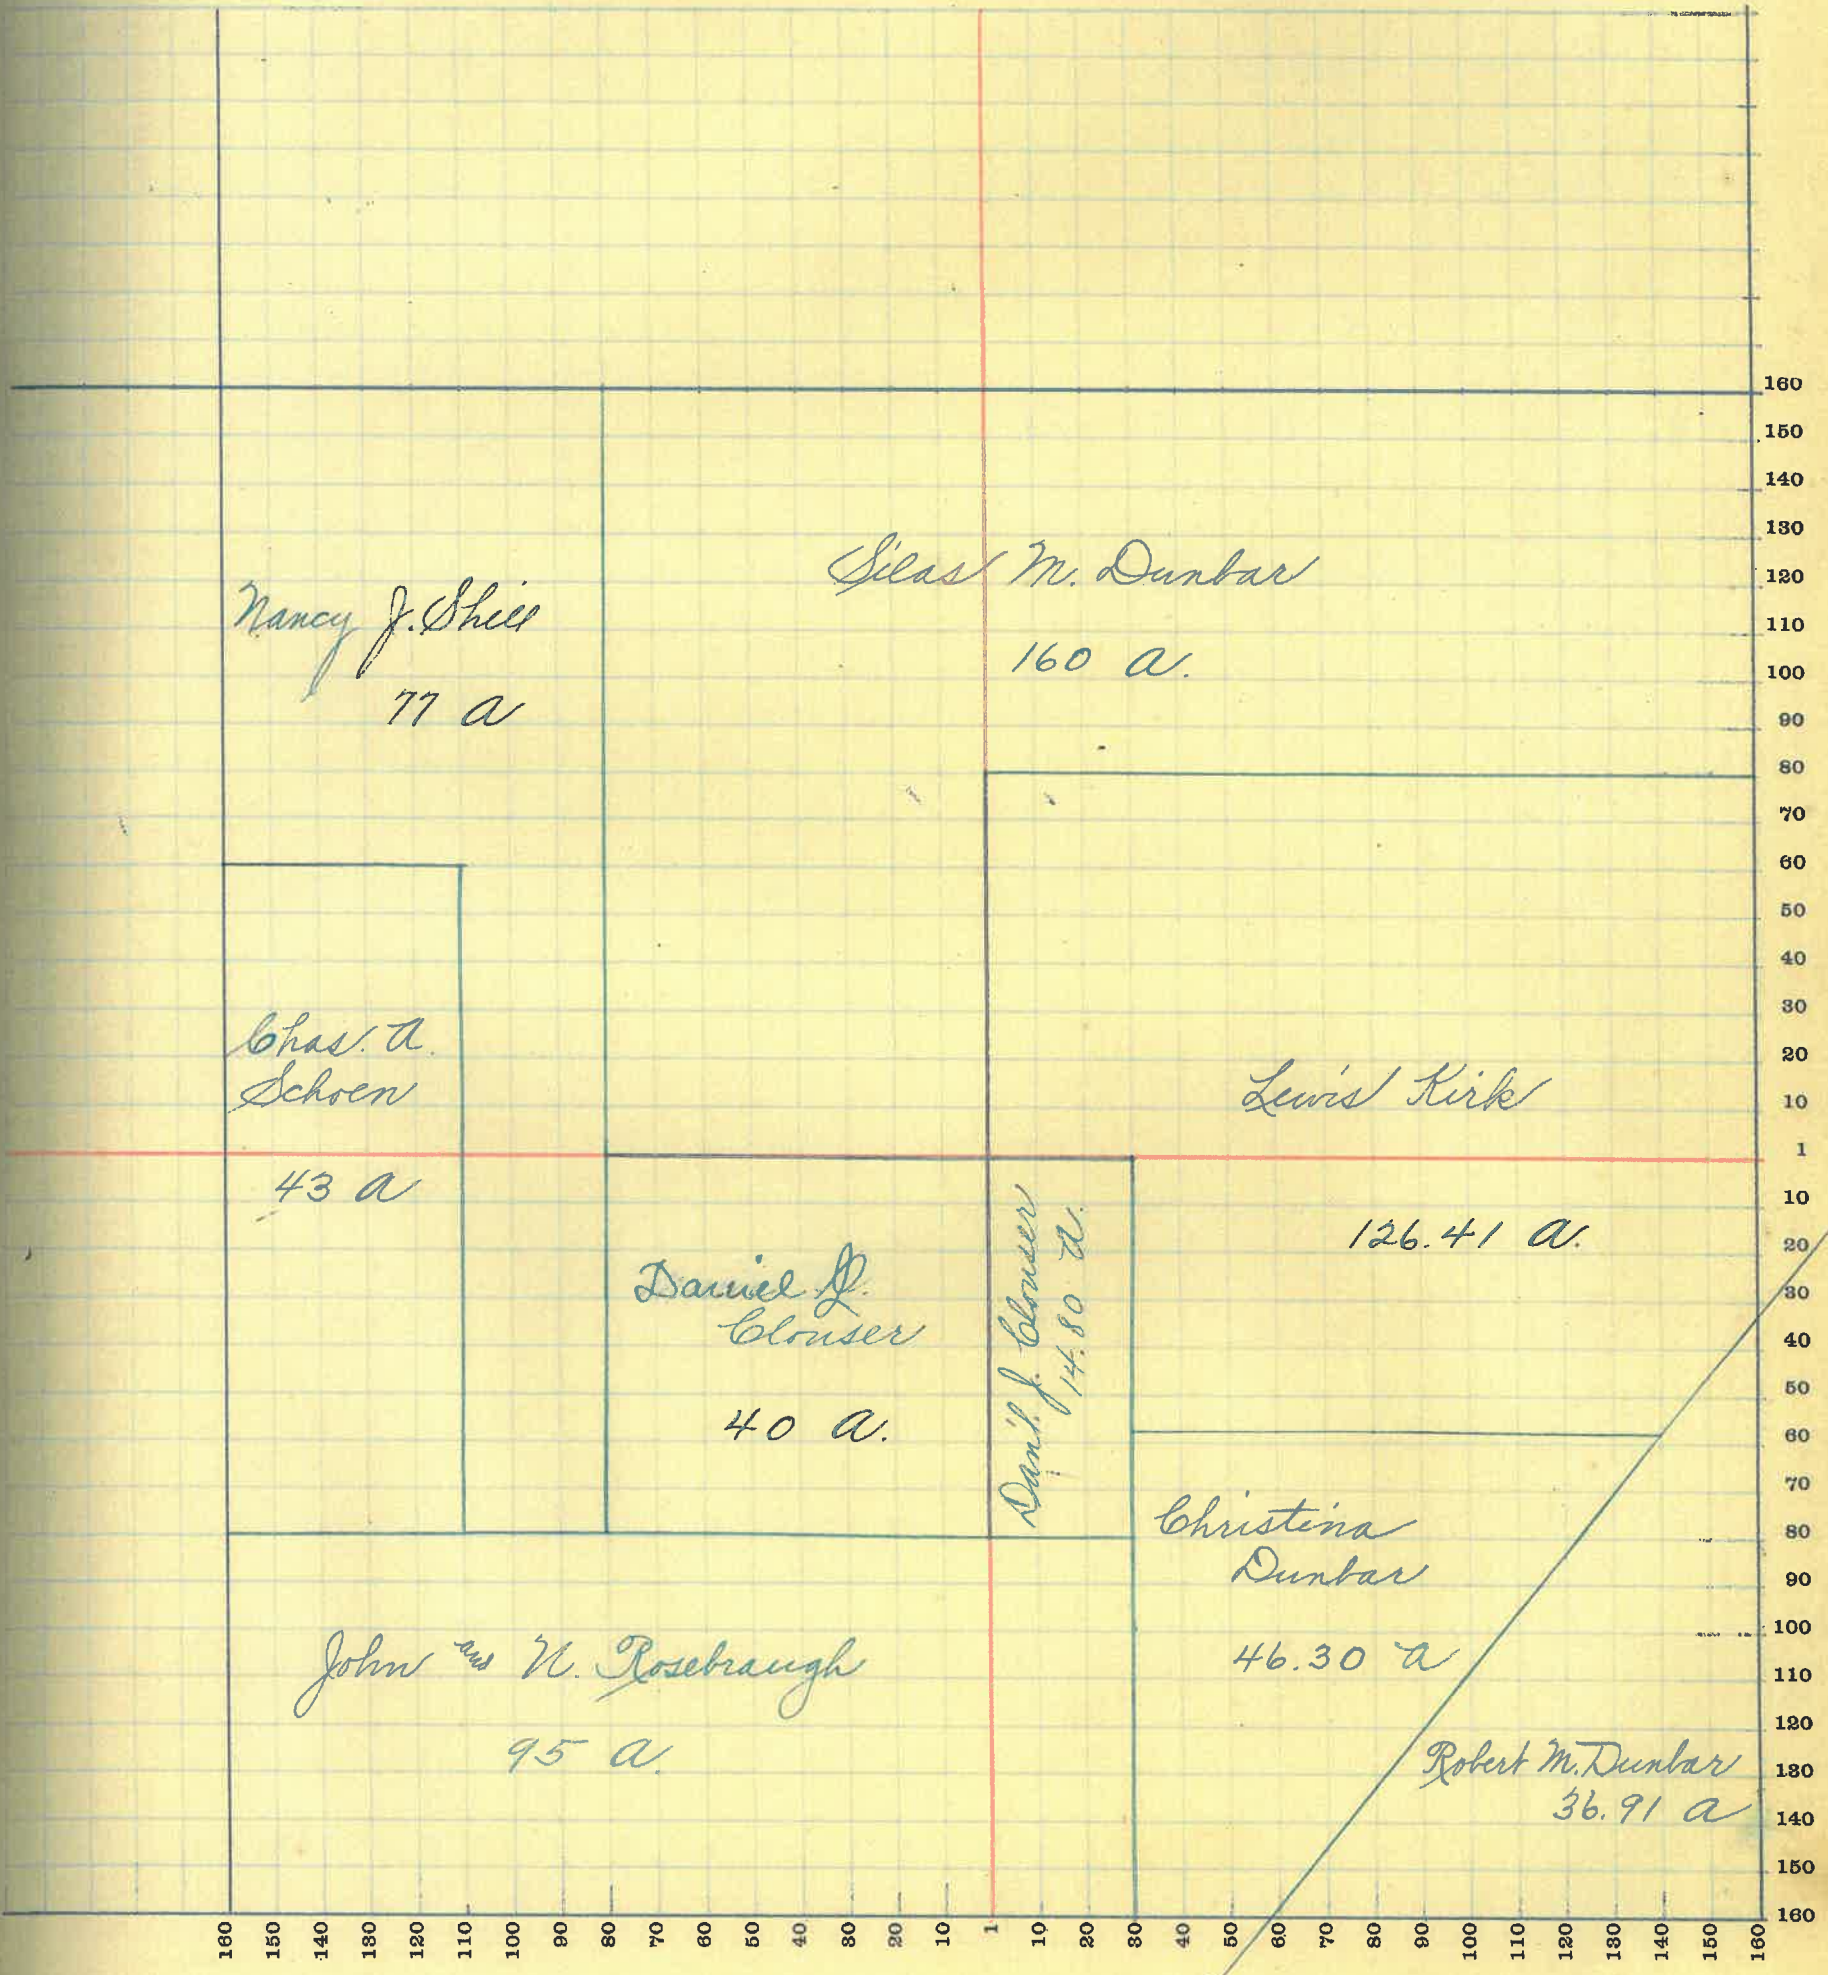 Silas M. Dunbar
160 a.
Nancy J. Shill
77 a
Chas. A.
Schoen
43 a
Lewis Kirk
126.41 a.
Daniel J.
Clouser
40 a.
Dan'l. J. Clouser
14.80 a.
Christina
Dunbar
46.30 a
John and N. Rosebraugh
95 a.
Robert M. Dunbar
36.91 a
160
150
140
130
120
110
100
90
80
70
60
50
40
30
20
10
1
10
20
30
40
50
60
70
80
90
100
110
120
130
140
150
160
160 150 140 130 120 110 100 90 80 70 60 50 40 30 20 10 1 10 20 30 40 50 60 70 80 90 100 110 120 130 140 150 160